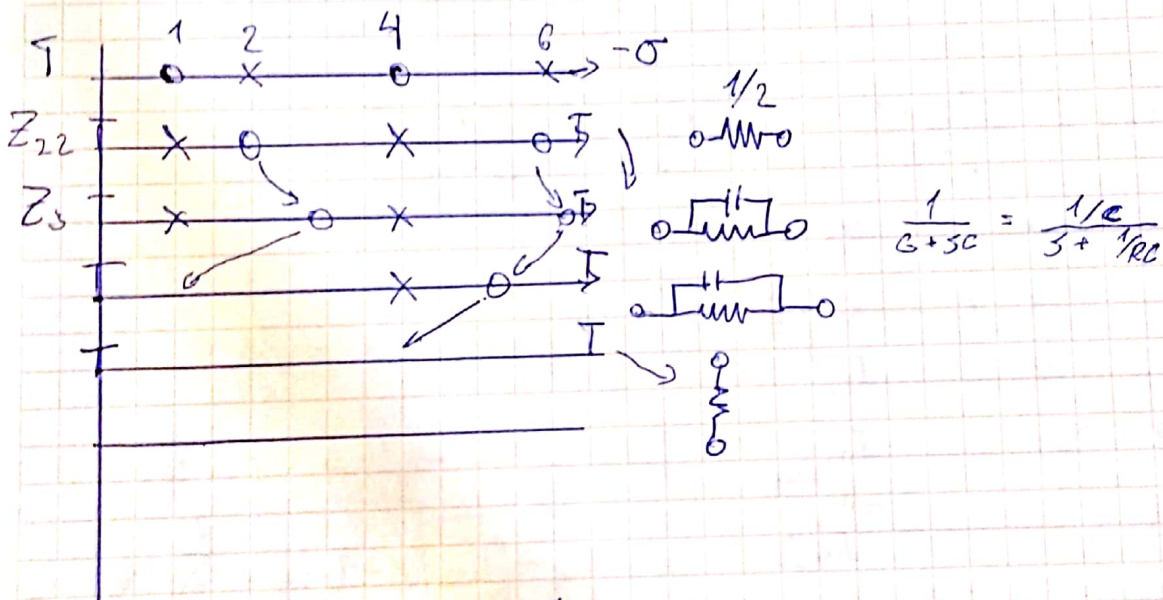 1 2 4 6
T -σ
1/2
Z22
Z3
1/(G+SC) = (1/C)/(S+1/RC)